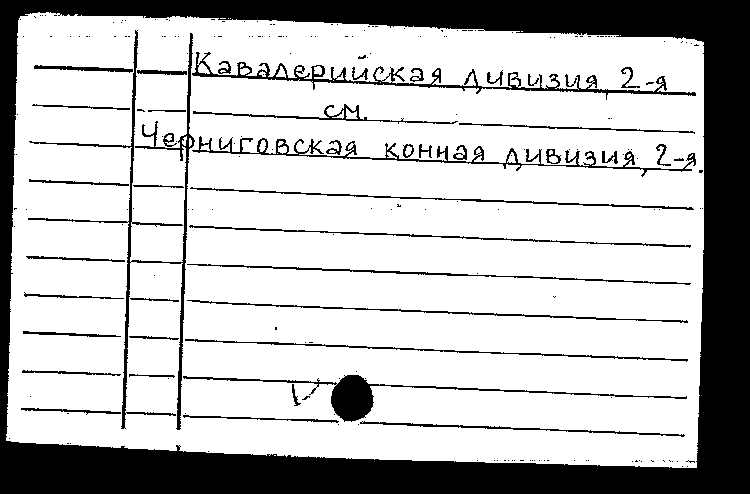 Кавалерийская дивизия, 2-я
см.
Черниговская конная дивизия, 2-я.